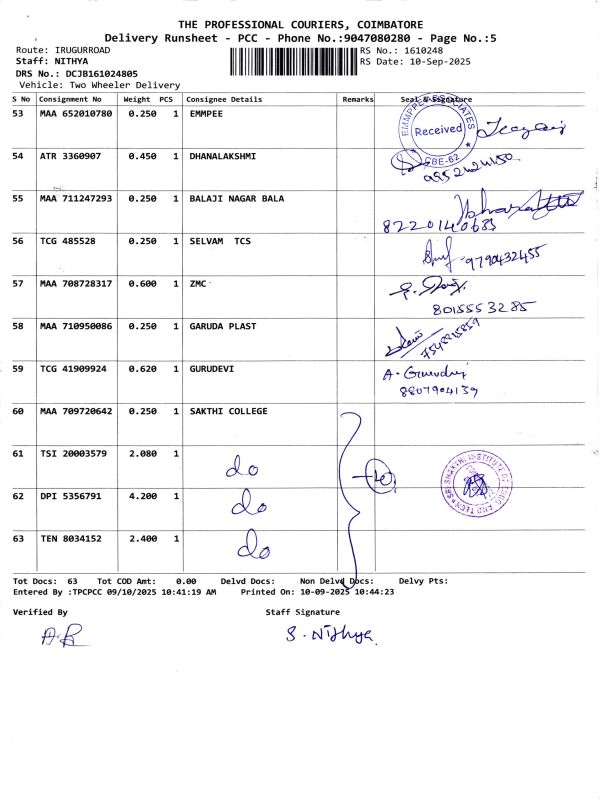 THE PROFESSIONAL COURIERS, COIMBATORE
Delivery Runsheet - PCC - Phone No.:9047080280 - Page No.:5
Route: IRUGURROAD
RS No.: 1610248
Staff: NITHYA
RS Date: 10-Sep-2025
DRS No.: DCJB161024805
Vehicle: Two Wheeler Delivery
S No Consignment No Weight PCS Consignee Details Remarks Seal & Signature
53 MAA 652010780 0.250 1 EMMPEE
Received
CBE-62
54 ATR 3360907 0.450 1 DHANALAKSHMI
55 MAA 711247293 0.250 1 BALAJI NAGAR BALA
8220140683
56 TCG 485528 0.250 1 SELVAM TCS
9790432455
57 MAA 708728317 0.600 1 ZMC
8015553285
58 MAA 710950086 0.250 1 GARUDA PLAST
59 TCG 41909924 0.620 1 GURUDEVI
A. Gurudevi
8807904139
60 MAA 709720642 0.250 1 SAKTHI COLLEGE
61 TSI 20003579 2.080 1 do
62 DPI 5356791 4.200 1 do
63 TEN 8034152 2.400 1 do
Tot Docs: 63 Tot COD Amt: 0.00 Delvd Docs: Non Delvd Docs: Delvy Pts:
Entered By :TPCPCC 09/10/2025 10:41:19 AM Printed On: 10-09-2025 10:44:23
Verified By Staff Signature
S. Nithya